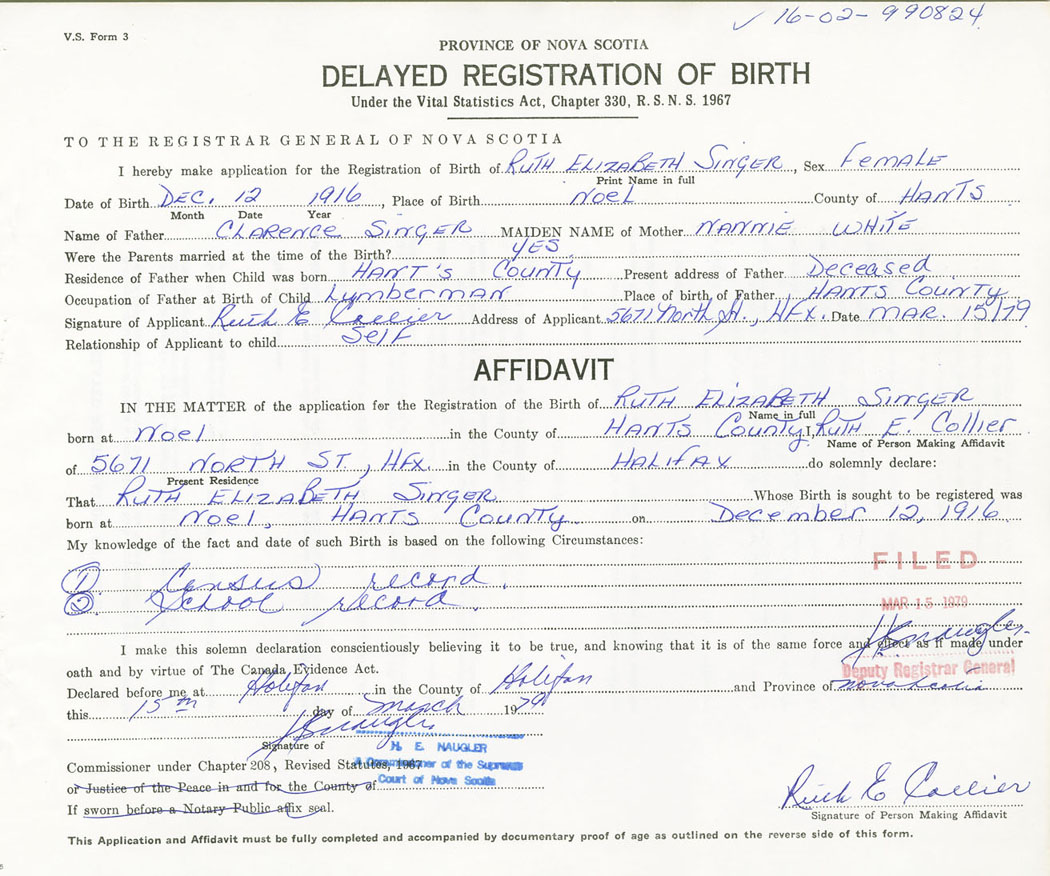 ✓ 16-02-990824
V.S. Form 3
PROVINCE OF NOVA SCOTIA
DELAYED REGISTRATION OF BIRTH
Under the Vital Statistics Act, Chapter 330, R.S.N.S. 1967
TO THE REGISTRAR GENERAL OF NOVA SCOTIA
I hereby make application for the Registration of Birth of RUTH ELIZABETH SINGER, Sex FEMALE
Print Name in full
Date of Birth DEC. 12 1916, Place of Birth Noel County of HANTS
Month Date Year
Name of Father CLARENCE SINGER MAIDEN NAME of Mother NANNIE WHITE
Were the Parents married at the time of the Birth? YES
Residence of Father when Child was born HANT'S COUNTY Present address of Father Deceased
Occupation of Father at Birth of Child Lumberman Place of birth of Father HANTS COUNTY
Signature of Applicant Ruth E Collier Address of Applicant 5671 North St., HFX. Date MAR. 15/79
Relationship of Applicant to child Self
AFFIDAVIT
IN THE MATTER of the application for the Registration of the Birth of RUTH ELIZABETH SINGER
Name in full
born at Noel in the County of HANTS COUNTY I, RUTH E. Collier
Name of Person Making Affidavit
of 5671 NORTH ST., HFX. in the County of HALIFAX do solemnly declare:
Present Residence
That RUTH ELIZABETH SINGER Whose Birth is sought to be registered was
born at Noel, HANTS COUNTY on December 12, 1916
My knowledge of the fact and date of such Birth is based on the following Circumstances:
FILED
① Census record.
② School record.
MAR 15 1979
H E Naugler
I make this solemn declaration conscientiously believing it to be true, and knowing that it is of the same force and effect as if made under
oath and by virtue of The Canada Evidence Act.
Deputy Registrar General
Declared before me at Halifax in the County of Halifax and Province of Nova Scotia
this 15th day of March 1979
H E Naugler
Signature of
H. E. NAUGLER
Commissioner under Chapter 208, Revised Statutes, 1967
A Commissioner of the Supreme
or Justice of the Peace in and for the County of
Court of Nova Scotia
If sworn before a Notary Public affix seal.
Ruth E Collier
Signature of Person Making Affidavit
This Application and Affidavit must be fully completed and accompanied by documentary proof of age as outlined on the reverse side of this form.